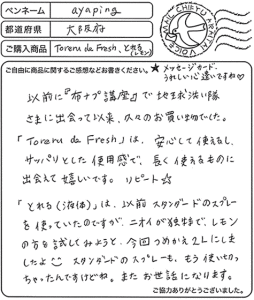 MAIL CHIERU ARRIVAL VOICE
ペンネーム ayaping
都道府県 大阪府
ご購入商品 Toreru de Fresh、とれる(レモン)
ご自由に商品に関するご感想などお書きください。
★メッセージカード、うれしい心違いですね♡
以前に『布ナプ講座』で地球洗い隊
さまに出会って以来、久々のお買い物でした。
「Toreru de Fresh」は、安心して使えるし、
サッパリとした使用感で、長く使えるものに
出会えて嬉しいです。リピート☆
「とれる(液体)」は、以前スタンダードのスプレー
を使っていたのですが、ニオイが独特で、レモン
の方を試してみようと、今回つめかえ2Lにしま
したよ スタンダードのスプレーも、もう使い切っ
ちゃったんですけどね。またお世話になります。
ご協力ありがとうございました。